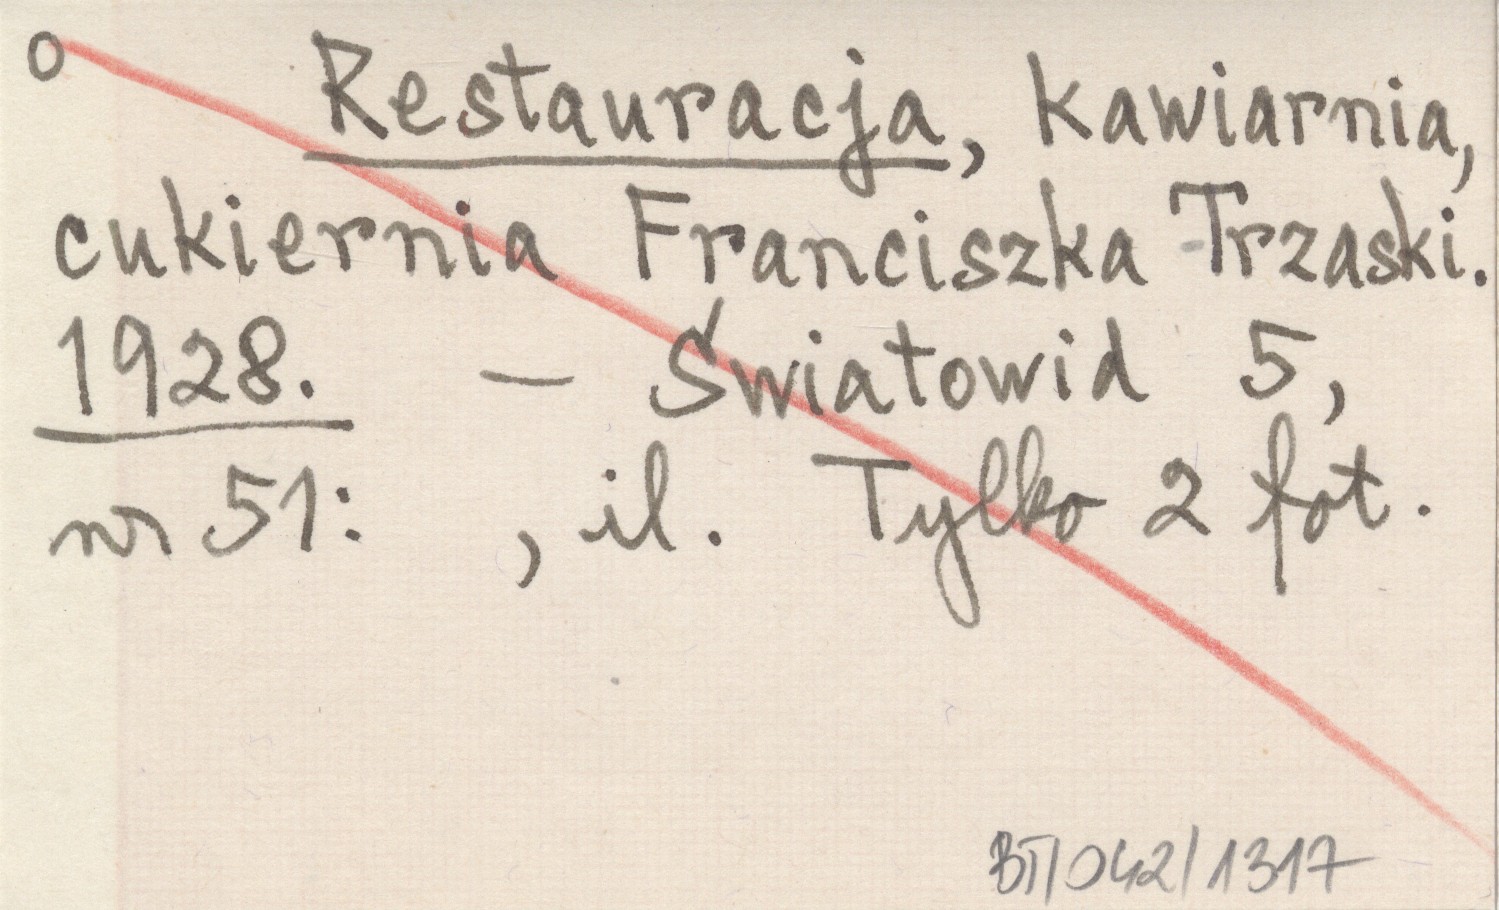 o Restauracja, kawiarnia,
cukiernia Franciszka Trzaski.
1928. – Światowid 5,
nr 51: , il. Tylko 2 fot.
BT/042/1317